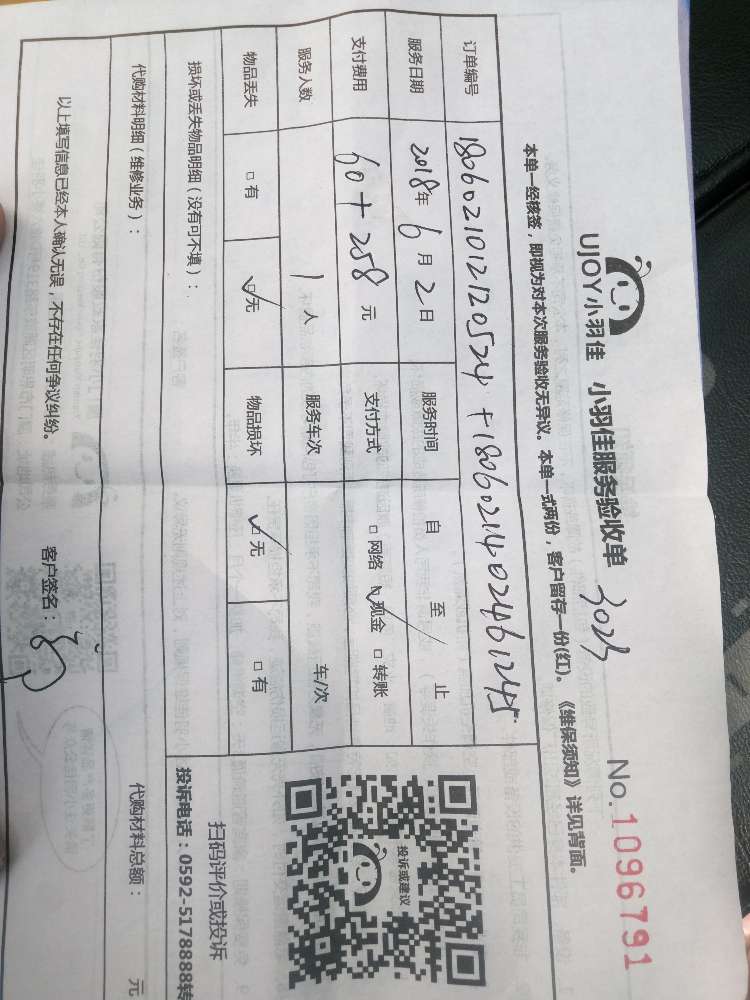 UJOY小羽佳 小羽佳服务验收单 No.1096791
本单一经核签，即视为对本次服务验收无异议。本单一式两份，客户留存一份(红)。《维保须知》详见背面。
订单编号 1806021012120524 +18060214024461245
服务日期 2018年6月2日 服务时间 自 至 止
支付费用 60+258元 支付方式 □网络 ☑现金 □转账
服务人数 1人 服务车次 车/次
物品丢失 □有 ☑无 物品损坏 ☑无 □有
投诉或建议
扫码评价或投诉
投诉电话：0592-5178888转
损坏或丢失物品明细（没有可不填）：
代购材料明细（维修业务）： 代购材料总额： 元
以上填写信息已经本人确认无误，不存在任何争议纠纷。 客户签名：